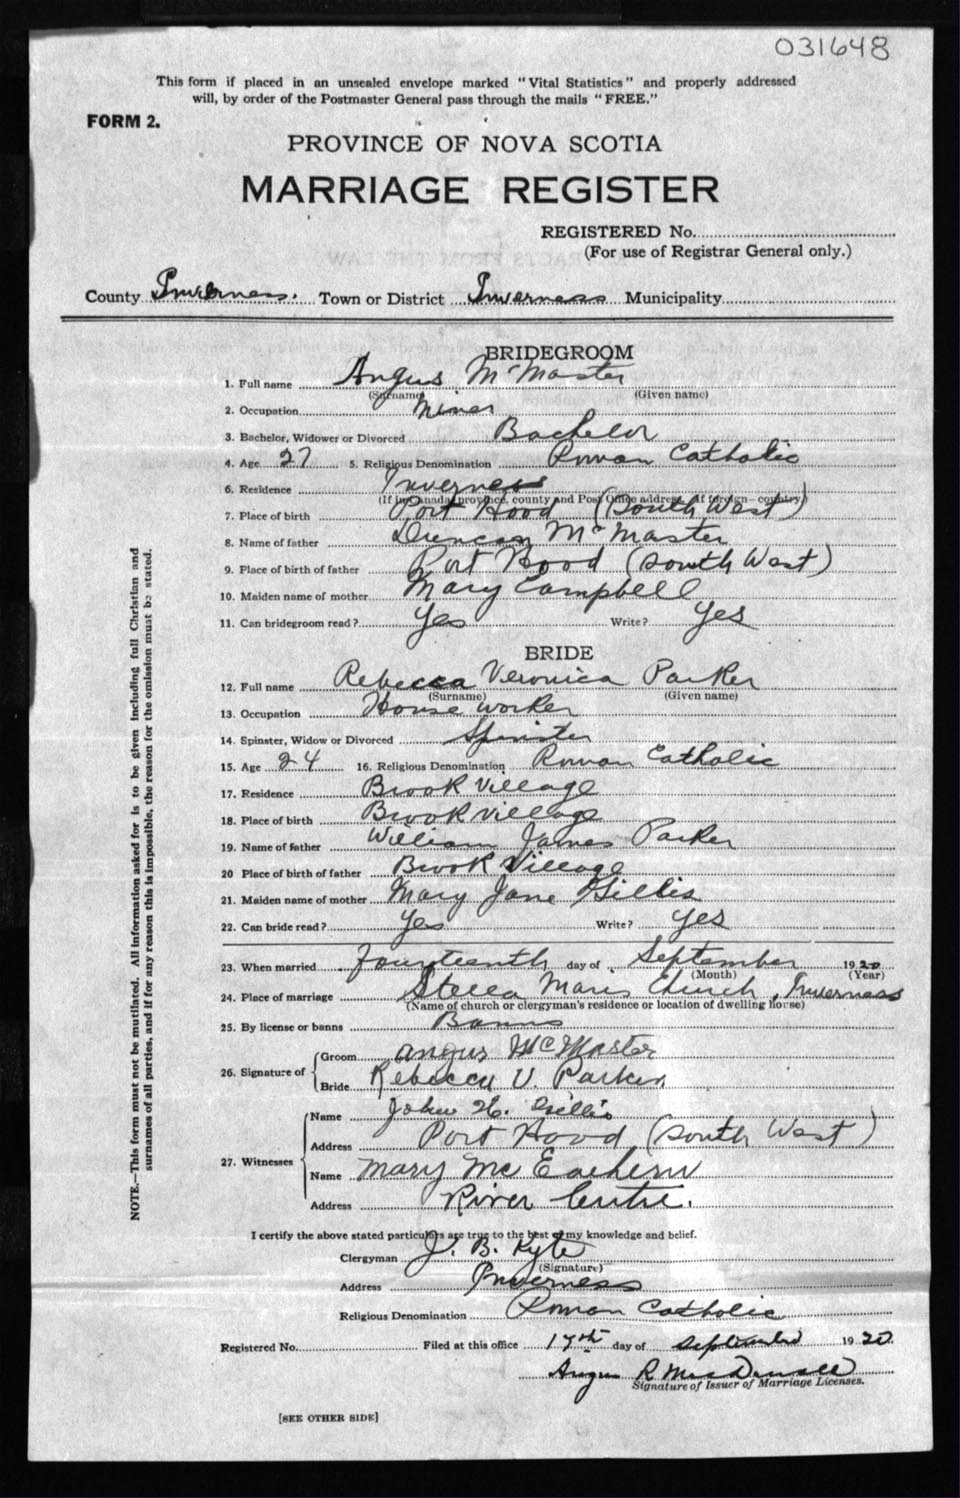 031648
This form if placed in an unsealed envelope marked "Vital Statistics" and properly addressed
will, by order of the Postmaster General pass through the mails "FREE."
FORM 2.
PROVINCE OF NOVA SCOTIA
MARRIAGE REGISTER
REGISTERED No.
(For use of Registrar General only.)
County Inverness. Town or District Inverness Municipality
BRIDEGROOM
1. Full name Angus McMaster
(Surname) (Given name)
2. Occupation Miner
3. Bachelor, Widower or Divorced Bachelor
4. Age 27 5. Religious Denomination Roman Catholic
6. Residence Inverness
(If in Canada, province, county and Post Office address, if foreign—country)
7. Place of birth Port Hood (South West)
8. Name of father Duncan McMaster
9. Place of birth of father Port Hood (South West)
10. Maiden name of mother Mary Campbell
11. Can bridegroom read? Yes Write? Yes
BRIDE
12. Full name Rebecca Veronica Parker
(Surname) (Given name)
13. Occupation House worker
14. Spinster, Widow or Divorced Spinster
15. Age 24 16. Religious Denomination Roman Catholic
17. Residence Brook Village
18. Place of birth Brook Village
19. Name of father William James Parker
20 Place of birth of father Brook Village
21. Maiden name of mother Mary Jane Gillis
22. Can bride read? Yes Write? Yes
23. When married Fourteenth day of September 1920
(Month) (Year)
24. Place of marriage Stella Maris Church, Inverness
(Name of church or clergyman's residence or location of dwelling house)
25. By license or banns Banns
26. Signature of Groom Angus McMaster
Bride Rebecca V. Parker
27. Witnesses Name John H. Gillis
Address Port Hood (South West)
Name Mary McEachern
Address River Centre.
I certify the above stated particulars are true to the best of my knowledge and belief.
Clergyman J. B. Kyte
(Signature)
Address Inverness
Religious Denomination Roman Catholic
Registered No. Filed at this office 17th day of September 1920.
Angus R MacDonald
Signature of Issuer of Marriage Licenses.
[SEE OTHER SIDE]
NOTE.—This form must not be mutilated. All information asked for is to be given including full Christian and
surnames of all parties, and if for any reason this is impossible, the reason for the omission must be stated.